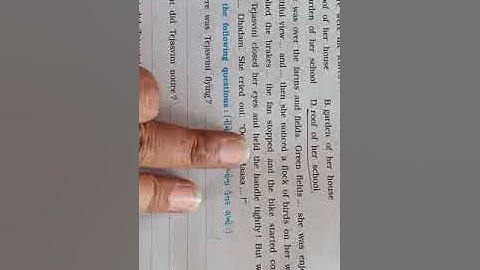 oof of her house B. garden of her house
arden of her school D. roof of her school
was over the farms and fields. Green fields ... she was enjo
tiful view ... and ... then she noticed a flock of birds on her w
hed the brakes ... the fan stopped and the bike started co
Tejasvini closed her eyes and held the handle tightly! But w
... Dhadam. She cried out.
the following questions : ઉત્તર આપો :)
re was Tejasvini flying?
t did Tejasvini notice?